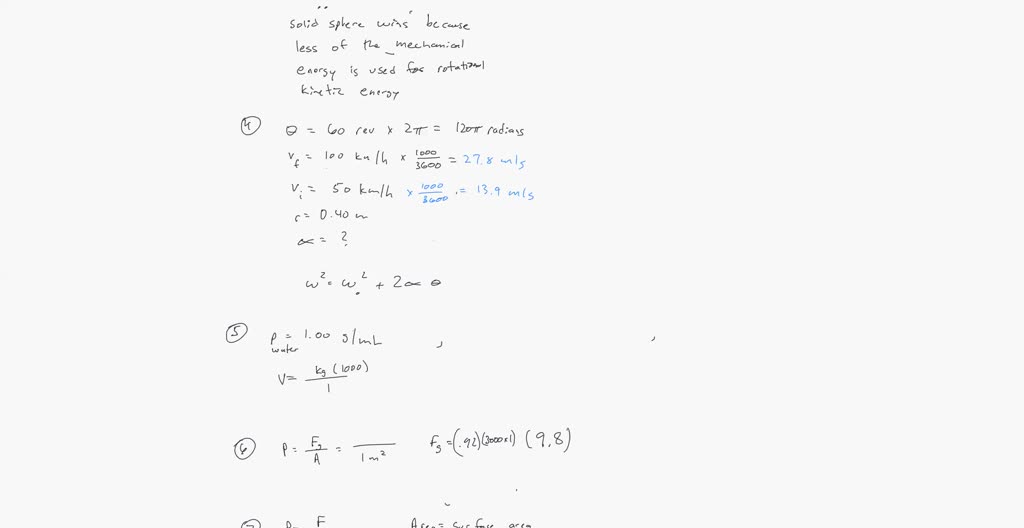 solid sphere wins because
less of the mechanical
energy is used for rotational
kinetic energy
④ θ = 60 rev × 2π = 120π radians
v_f = 100 km/h × 1000/3600 = 27.8 m/s
v_i = 50 km/h × 1000/3600 = 13.9 m/s
r = 0.40 m
α = ?
ω² = ω₀² + 2αθ
⑤ ρ_water = 1.00 g/mL
V = kg(1000)/1
⑥ P = F_g/A = /1m² F_g = (.92)(3000×1)(9.8)
⑦ P = F Area = surface area